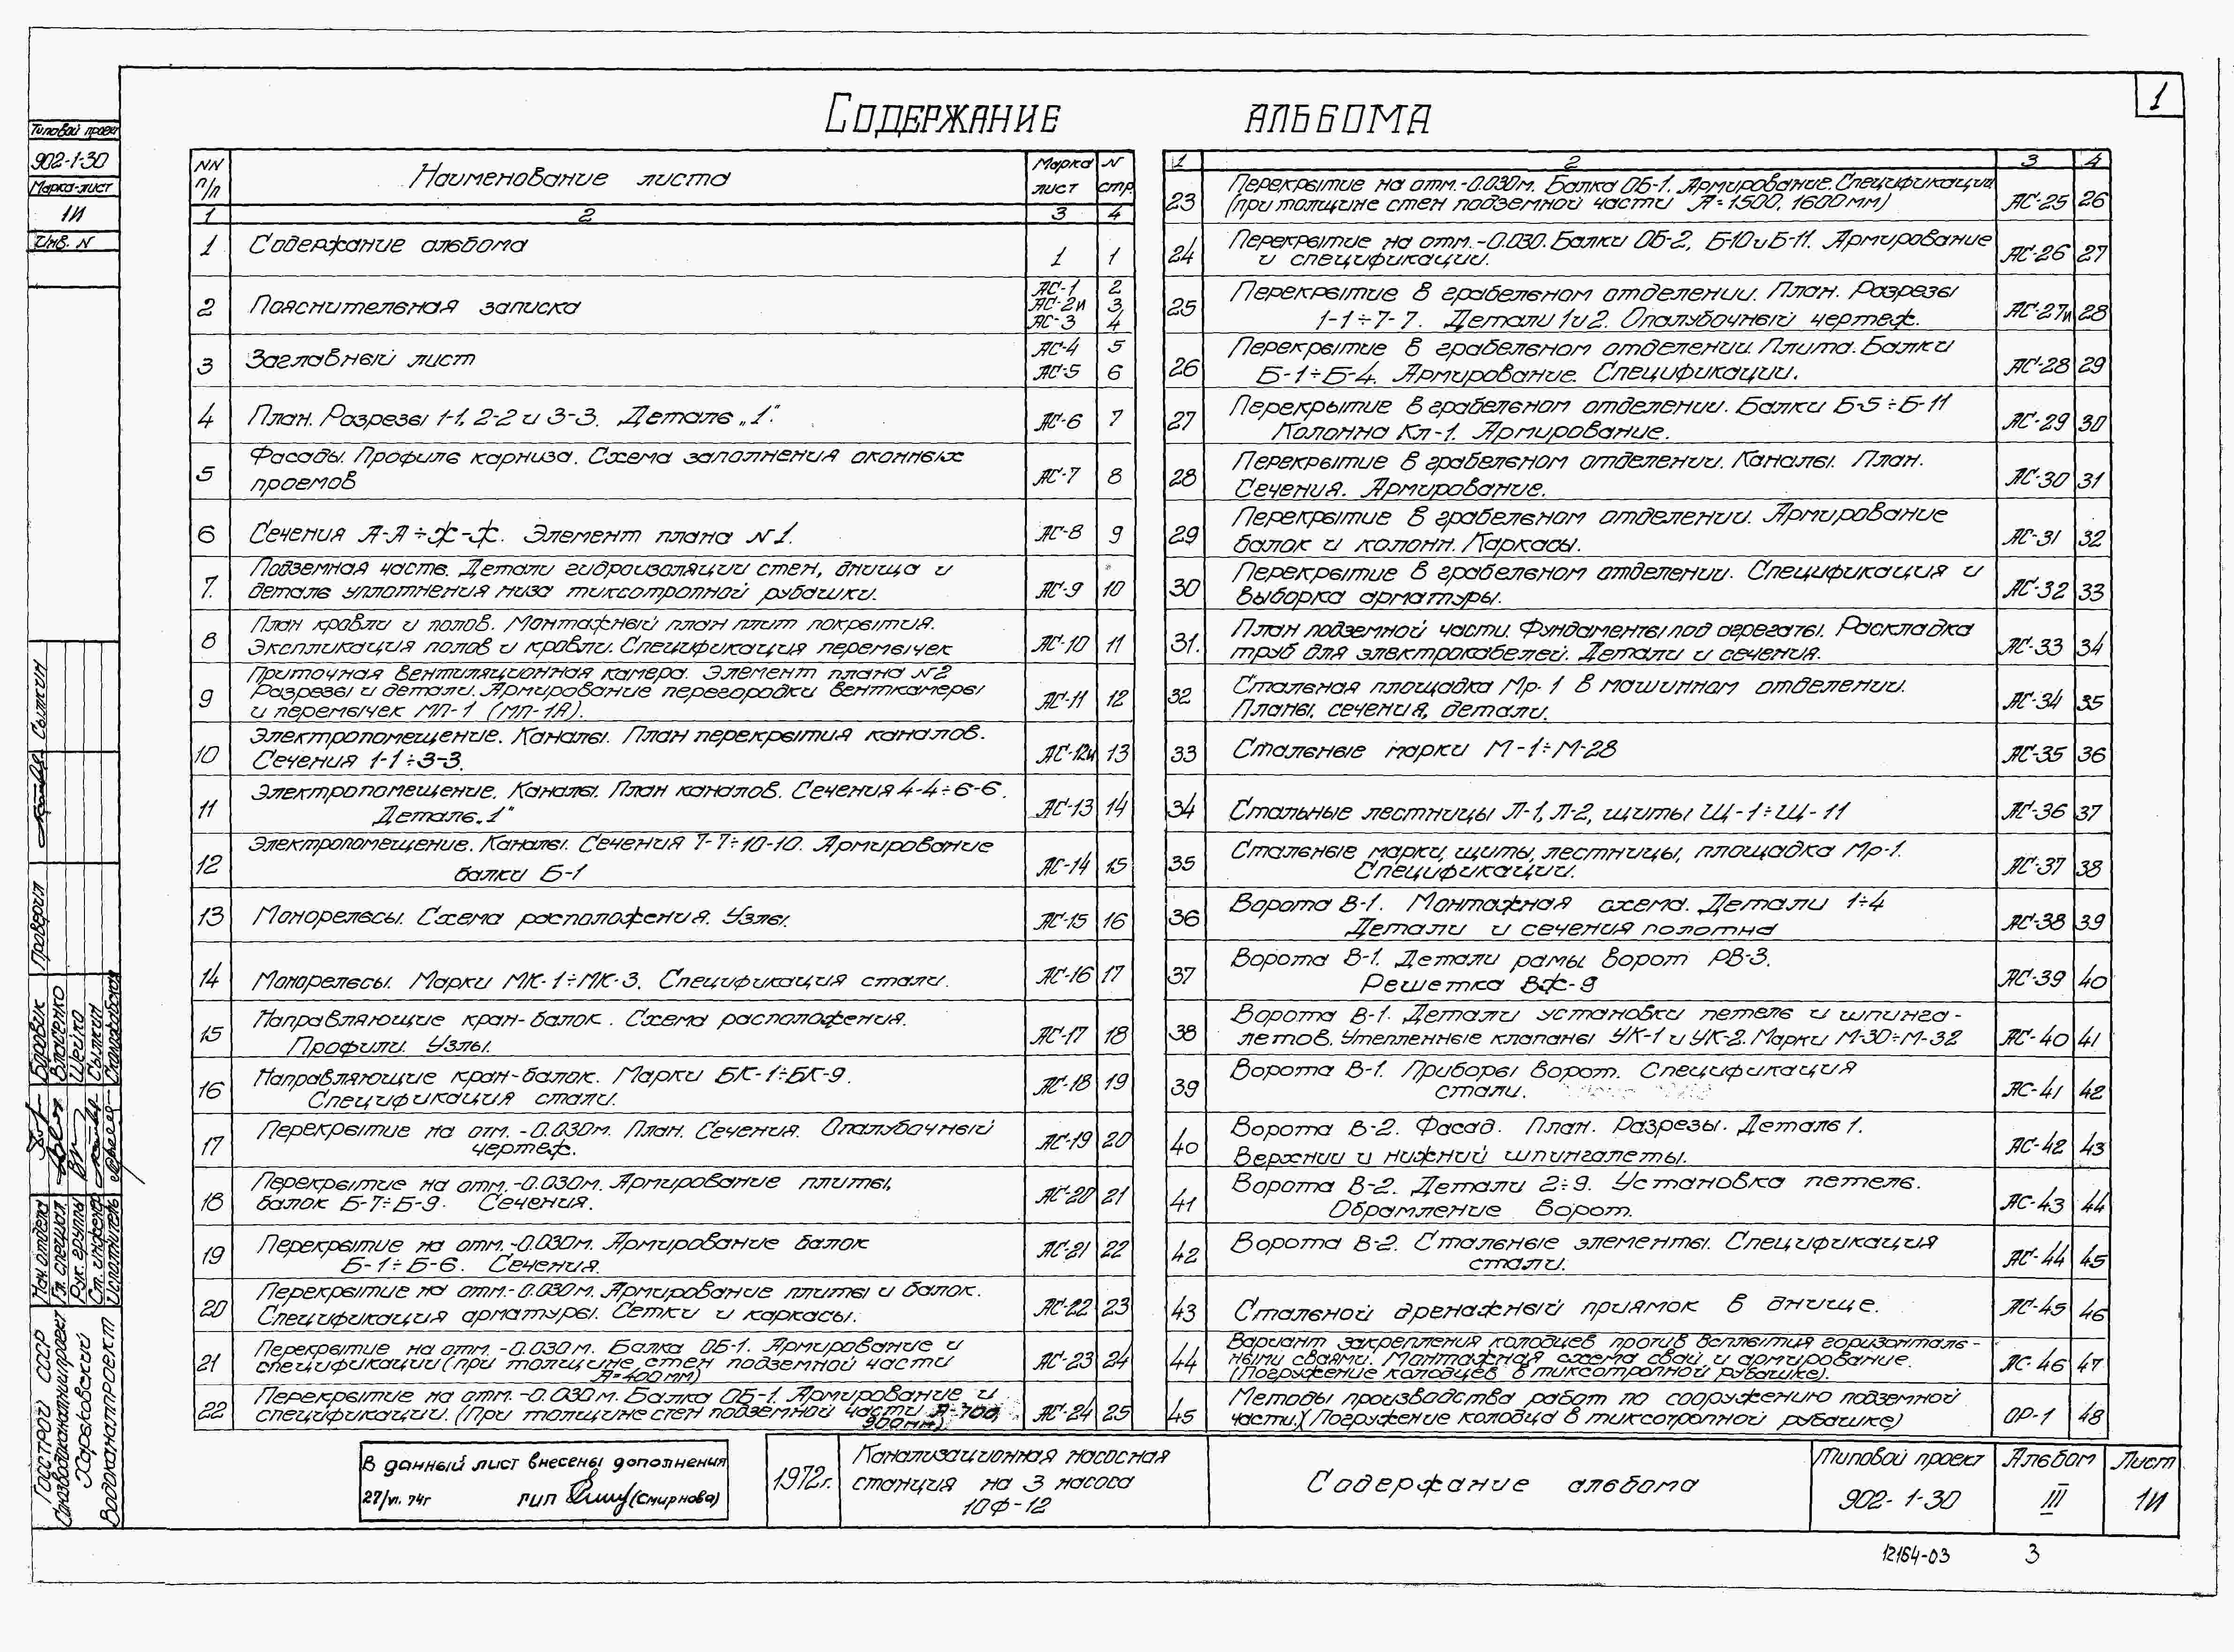 1
Содержание альбома
Типовой проект
902-1-30
Марка-лист
1И
Инв. N
NN п/п
Наименование листа
Марка лист
N стр.
1 2 3 4
1 Содержание альбома 1 1
2 Пояснительная записка АС-1 2
АС-2и 3
АС-3 4
3 Заглавный лист АС-4 5
АС-5 6
4 План. Разрезы 1-1, 2-2 и 3-3. Деталь „1". АС-6 7
Фасады. Профиль карниза. Схема заполнения оконных
5 проемов АС-7 8
6 Сечения А-А÷Ж-Ж. Элемент плана N1. АС-8 9
Подземная часть. Детали гидроизоляции стен, днища и
7. деталь уплотнения низа тиксотропной рубашки. АС-9 10
План кровли и полов. Монтажный план плит покрытия.
8 Экспликация полов и кровли. Спецификация перемычек АС-10 11
Приточная вентиляционная камера. Элемент плана N2
9 Разрезы и детали. Армирование перегородки венткамеры АС-11 12
и перемычек МП-1 (МП-1А).
Электропомещение. Каналы. План перекрытия каналов.
10 Сечения 1-1÷3-3. АС-12и 13
Электропомещение. Каналы. План каналов. Сечения 4-4÷6-6.
11 Деталь„1" АС-13 14
Электропомещение. Каналы. Сечения 7-7÷10-10. Армирование
12 балки Б-1 АС-14 15
13 Монорельсы. Схема расположения. Узлы. АС-15 16
14 Монорельсы. Марки МК-1÷МК-3. Спецификация стали. АС-16 17
Направляющие кран-балок. Схема расположения.
15 Профили. Узлы. АС-17 18
Направляющие кран-балок. Марки БК-1÷БК-9.
16 Спецификация стали. АС-18 19
Перекрытие на отм. -0.030м. План. Сечения. Опалубочный
17 чертеж. АС-19 20
Перекрытие на отм. -0.030м. Армирование плиты,
18 балок Б-7÷Б-9. Сечения. АС-20 21
Перекрытие на отм. -0.030м. Армирование балок
19 Б-1÷Б-6. Сечения. АС-21 22
Перекрытие на отм.-0.030м. Армирование плиты и балок.
20 Спецификация арматуры. Сетки и каркасы. АС-22 23
Перекрытие на отм. -0.030м. Балка ОБ-1. Армирование и
21 спецификации (при толщине стен подземной части АС-23 24
А=400мм)
Перекрытие на отм. -0.030м. Балка ОБ-1. Армирование и
22 спецификации. (При толщине стен подземной части А-700, АС-24 25
900мм)
1 2 3 4
Перекрытие на отм.-0.030м. Балка ОБ-1. Армирование. Спецификации
23 (при толщине стен подземной части А=1500, 1600мм) АС-25 26
Перекрытие на отм.-0.030. Балки ОБ-2, Б-10 и Б-11. Армирование
24 и спецификации. АС-26 27
Перекрытие в грабельном отделении. План. Разрезы
25 1-1÷7-7. Детали 1 и 2. Опалубочный чертеж. АС-27и 28
Перекрытие в грабельном отделении. Плита. Балки
26 Б-1÷Б-4. Армирование. Спецификации. АС-28 29
Перекрытие в грабельном отделении. Балки Б-5÷Б-11
27 Колонна Кл-1. Армирование. АС-29 30
Перекрытие в грабельном отделении. Каналы. План.
28 Сечения. Армирование. АС-30 31
Перекрытие в грабельном отделении. Армирование
29 балок и колонн. Каркасы. АС-31 32
Перекрытие в грабельном отделении. Спецификация и
30 выборка арматуры. АС-32 33
План подземной части. Фундаменты под агрегаты. Раскладка
31. труб для электрокабелей. Детали и сечения. АС-33 34
Стальная площадка Мр-1 в машинном отделении.
32 Планы, сечения, детали. АС-34 35
33 Стальные марки М-1÷М-28 АС-35 36
34 Стальные лестницы Л-1, Л-2, щиты Щ-1÷Щ-11 АС-36 37
Стальные марки, щиты, лестницы, площадка Мр-1.
35 Спецификации. АС-37 38
Ворота В-1. Монтажная схема. Детали 1÷4
36 Детали и сечения полотна АС-38 39
Ворота В-1. Детали рамы ворот РВ-3.
37 Решетка ВЖ-9 АС-39 40
Ворота В-1. Детали установки петель и шпинга-
38 летов. Утепленные клапаны УК-1 и УК-2. Марки М-30÷М-32 АС-40 41
Ворота В-1. Приборы ворот. Спецификация
39 стали. АС-41 42
Ворота В-2. Фасад. План. Разрезы. Деталь 1.
40 Верхний и нижний шпингалеты. АС-42 43
Ворота В-2. Детали 2÷9. Установка петель.
41 Обрамление ворот. АС-43 44
Ворота В-2. Стальные элементы. Спецификация
42 стали. АС-44 45
43 Стальной дренажный приямок в днище. АС-45 46
Вариант закрепления колодцев против всплытия горизонталь-
44 ными сваями. Монтажная схема свай и армирование. АС-46 47
(Погружение колодцев в тиксотропной рубашке).
Методы производства работ по сооружению подземной
45 части.(Погружение колодца в тиксотропной рубашке) ОР-1 48
Проверил Сыткин
Нач. отдела Боровик
Гл. специал. Власенко
Рук. группы Шейко
Ст. инженер Сыткин
Исполнитель
ГОССТРОЙ СССР
Союзводоканалниипроект
Харьковский
Водоканалпроект
В данный лист внесены дополнения
27/VI. 74г ГИП (Смирнова)
1972г.
Канализационная насосная
станция на 3 насоса
10Ф-12
Содержание альбома
Типовой проект
902-1-30
Альбом
III
Лист
1И
12164-03 3